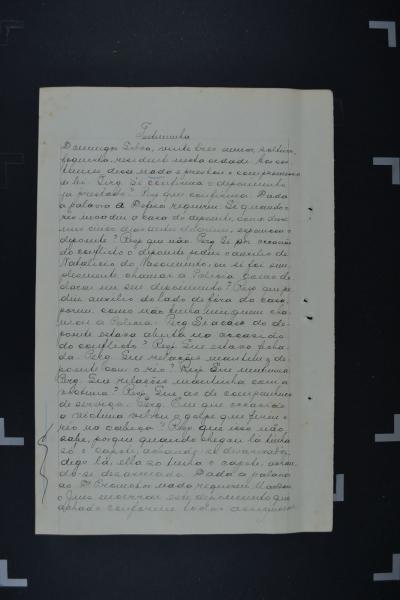 Testemunha
Domingos Silva, vinte e tres annos, solteiro,
foguista, residente nesta cidade. Aos cos-
tumes disse nada e prestou o compromisso
da lei. Perg. Se confirma o depoimento
ja prestado? Resp. que confirma. Dada
a palavra á Defesa requereu: Se quando o
réo invadiu a casa do depoente, como disse
uns cinco dias antes do crime, espancou o
depoente? Resp. que não. Perg. Se por occasião
do conflicto o depoente pediu o auxilio de
Natalicio do Nascimento, ou se foi sim-
plesmente chamar a Policia como de-
clarou em seu depoimento? Resp. que pe-
diu auxilio do lado de fóra da casa,
porem como não tinha ninguem cha-
mou a Policia. Perg. Se a casa do de-
poente estava aberta na occasião
do conflicto? Resp. Que estava fecha-
da. Perg. Que relações mantinha o de-
poente com o réo? Resp. Que nenhuma.
Perg. Que relações mantinha com a
victima? Resp. Que as de companheiro
de serviço. Perg. Em que occasião
a victima vibrou o golpe que feriu o
réo na cabeça? Resp. que isso não
sabe, porque quando chegou lá tinha
só o capote, achando-se desarmado,
digo lá, elle só tinha o capote, achan-
do-se desarmado. Dada a palavra
ao Dr. Promotor nada requereu. Mandou
o Juiz encerrar este depoimento que
achado conforme todos assignam